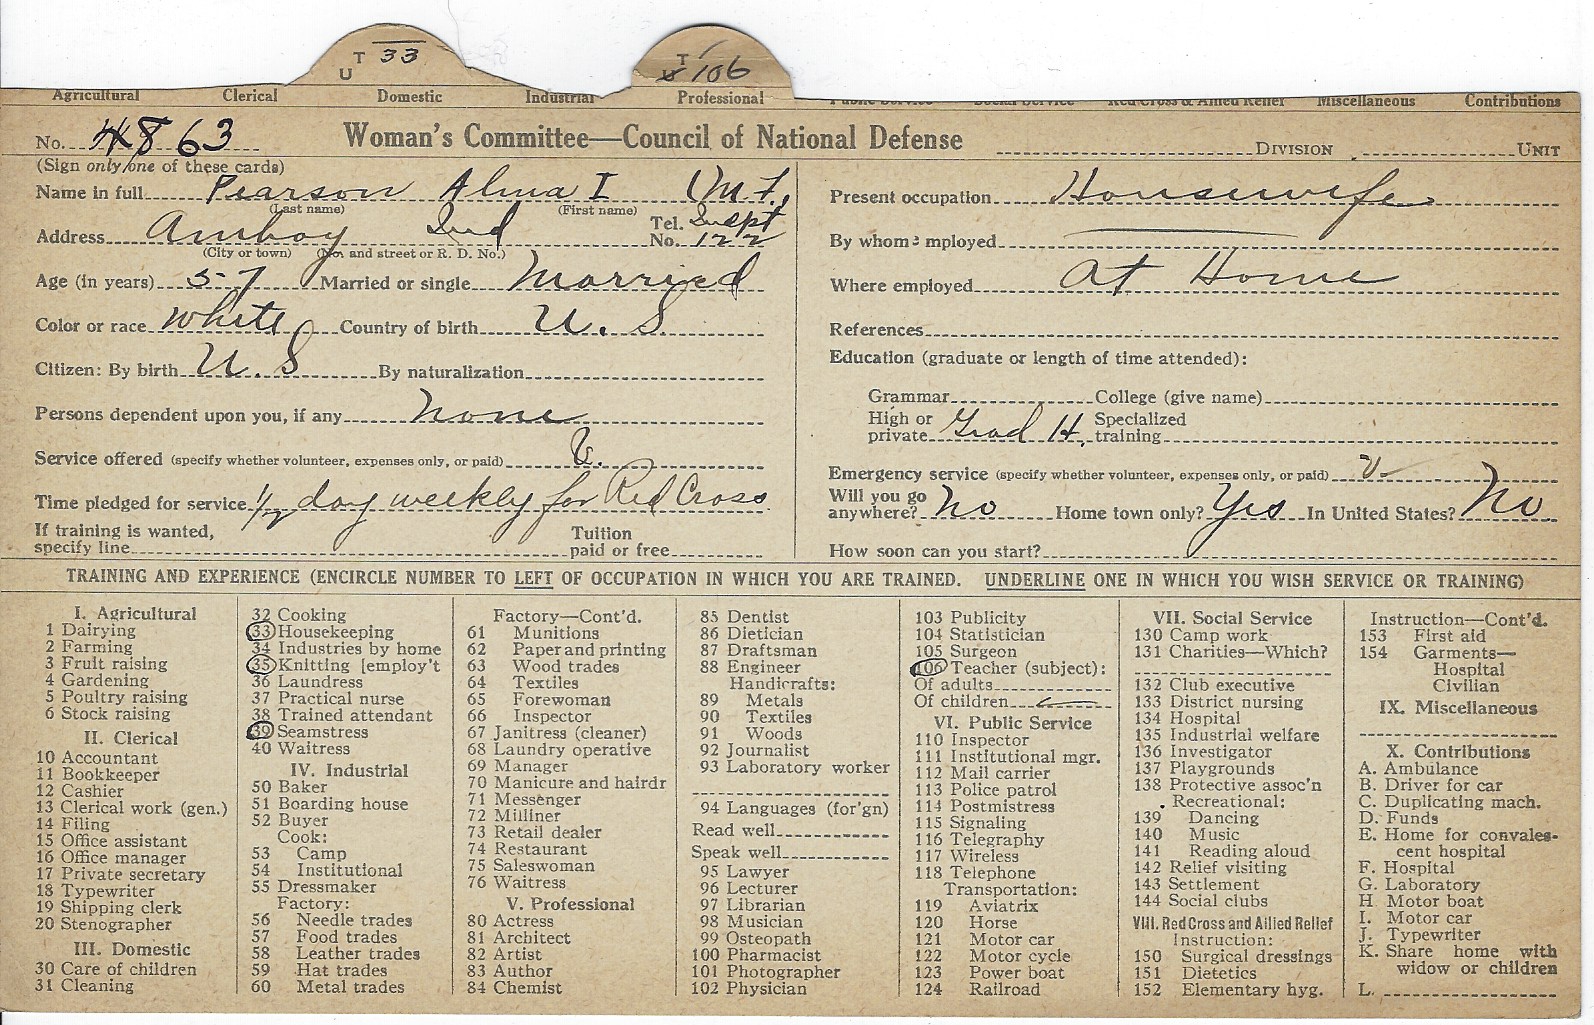 T U 33
T U 106
Agricultural Clerical Domestic Industrial Professional Public Service Social Service Red Cross & Allied Relief Miscellaneous Contributions
No. 4863 Woman's Committee—Council of National Defense DIVISION UNIT
(Sign only one of these cards)
Name in full Pearson Alma I (M.F.,
(Last name) (First name)
Supt
Address Amboy Ind Tel. No. 122
(City or town) (No. and street or R. D. No.)
Age (in years) 57 Married or single Married
Color or race White Country of birth U. S.
Citizen: By birth U. S By naturalization
Persons dependent upon you, if any none
Service offered (specify whether volunteer, expenses only, or paid) V.
Time pledged for service 1/2 day weekly for Red Cross
If training is wanted, specify line Tuition paid or free
Present occupation Housewife
By whom employed
Where employed At Home
References
Education (graduate or length of time attended):
Grammar College (give name)
High or private Grad H. Specialized training
Emergency service (specify whether volunteer, expenses only, or paid) V
Will you go anywhere? No Home town only? Yes In United States? No
How soon can you start?
TRAINING AND EXPERIENCE (ENCIRCLE NUMBER TO LEFT OF OCCUPATION IN WHICH YOU ARE TRAINED. UNDERLINE ONE IN WHICH YOU WISH SERVICE OR TRAINING)
I. Agricultural
1 Dairying
2 Farming
3 Fruit raising
4 Gardening
5 Poultry raising
6 Stock raising
II. Clerical
10 Accountant
11 Bookkeeper
12 Cashier
13 Clerical work (gen.)
14 Filing
15 Office assistant
16 Office manager
17 Private secretary
18 Typewriter
19 Shipping clerk
20 Stenographer
III. Domestic
30 Care of children
31 Cleaning
32 Cooking
33 Housekeeping
34 Industries by home
35 Knitting [employ't
36 Laundress
37 Practical nurse
38 Trained attendant
39 Seamstress
40 Waitress
IV. Industrial
50 Baker
51 Boarding house
52 Buyer
Cook:
53 Camp
54 Institutional
55 Dressmaker
Factory:
56 Needle trades
57 Food trades
58 Leather trades
59 Hat trades
60 Metal trades
Factory—Cont'd.
61 Munitions
62 Paper and printing
63 Wood trades
64 Textiles
65 Forewoman
66 Inspector
67 Janitress (cleaner)
68 Laundry operative
69 Manager
70 Manicure and hairdr
71 Messenger
72 Milliner
73 Retail dealer
74 Restaurant
75 Saleswoman
76 Waitress
V. Professional
80 Actress
81 Architect
82 Artist
83 Author
84 Chemist
85 Dentist
86 Dietician
87 Draftsman
88 Engineer
Handicrafts:
89 Metals
90 Textiles
91 Woods
92 Journalist
93 Laboratory worker
94 Languages (for'gn)
Read well
Speak well
95 Lawyer
96 Lecturer
97 Librarian
98 Musician
99 Osteopath
100 Pharmacist
101 Photographer
102 Physician
103 Publicity
104 Statistician
105 Surgeon
106 Teacher (subject):
Of adults
Of children
VI. Public Service
110 Inspector
111 Institutional mgr.
112 Mail carrier
113 Police patrol
114 Postmistress
115 Signaling
116 Telegraphy
117 Wireless
118 Telephone
Transportation:
119 Aviatrix
120 Horse
121 Motor car
122 Motor cycle
123 Power boat
124 Railroad
VII. Social Service
130 Camp work
131 Charities—Which?
132 Club executive
133 District nursing
134 Hospital
135 Industrial welfare
136 Investigator
137 Playgrounds
138 Protective assoc'n
Recreational:
139 Dancing
140 Music
141 Reading aloud
142 Relief visiting
143 Settlement
144 Social clubs
VIII. Red Cross and Allied Relief
Instruction:
150 Surgical dressings
151 Dietetics
152 Elementary hyg.
Instruction—Cont'd.
153 First aid
154 Garments—
Hospital
Civilian
IX. Miscellaneous
X. Contributions
A. Ambulance
B. Driver for car
C. Duplicating mach.
D. Funds
E. Home for convales-
cent hospital
F. Hospital
G. Laboratory
H. Motor boat
I. Motor car
J. Typewriter
K. Share home with
widow or children
L.